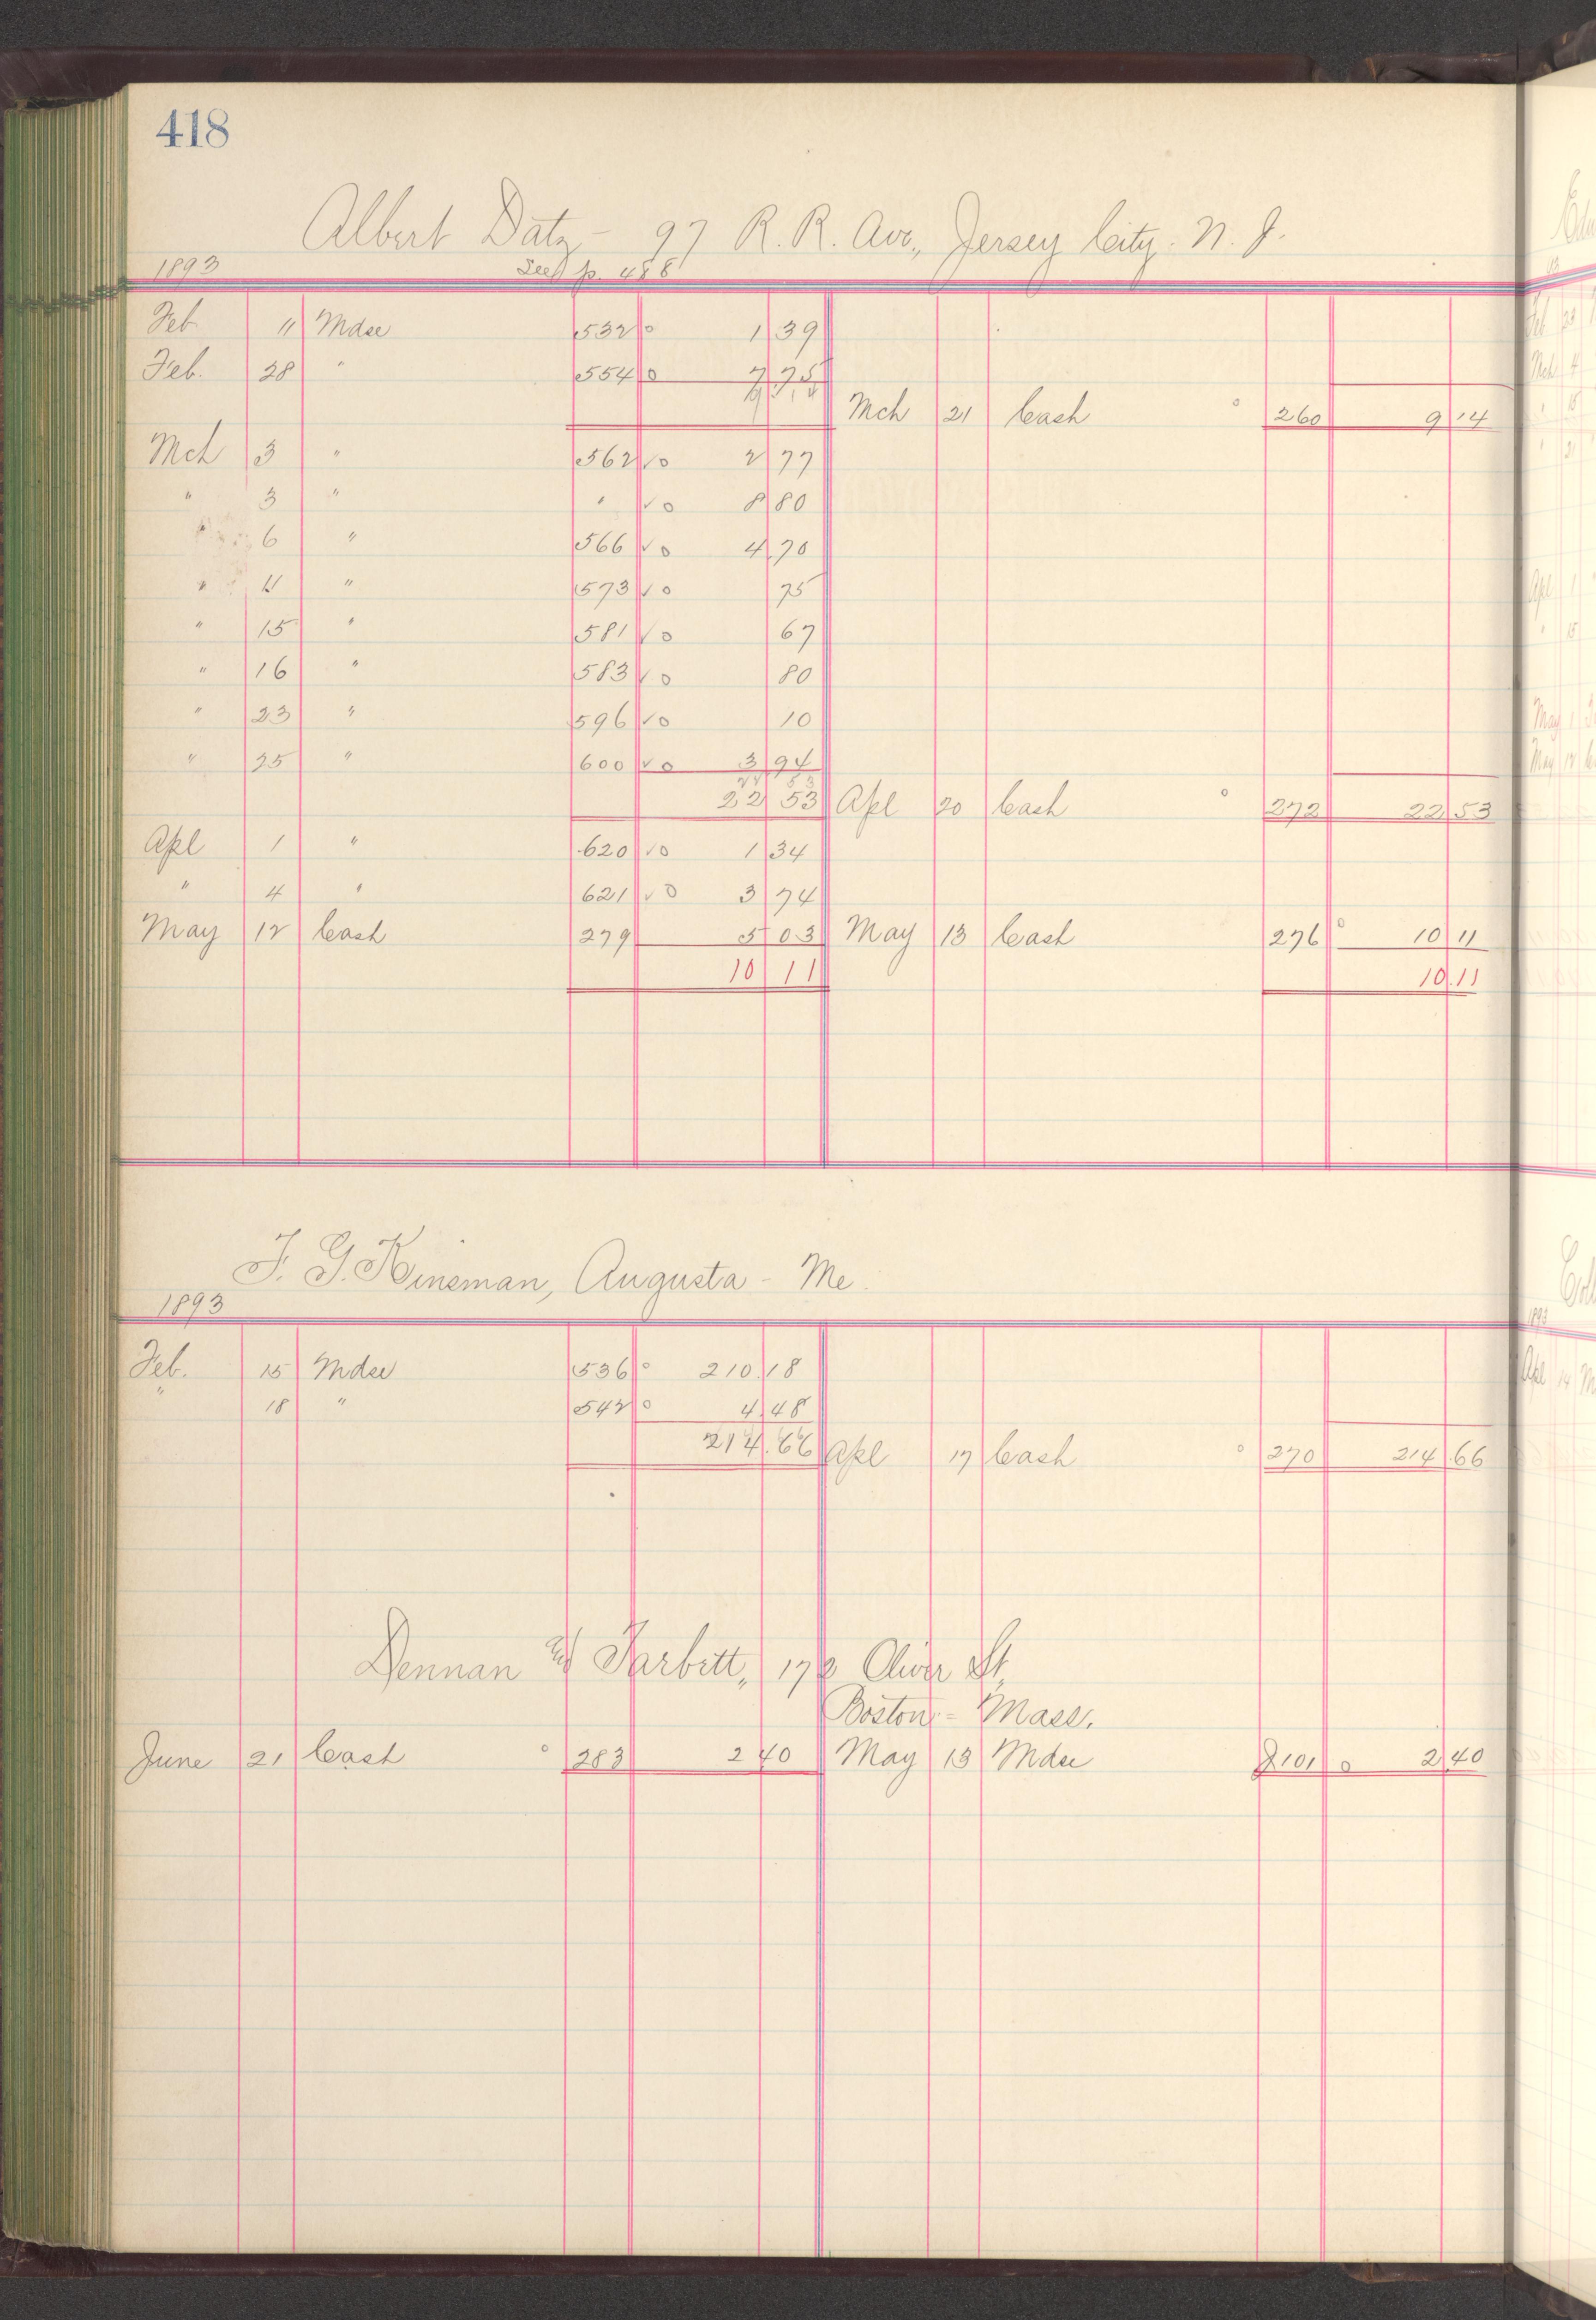 418
Albert Datz - 97 R. R. Ave., Jersey City. N. J.
1893 See p. 488
Feb 11 Mdse 532 0 1 39
Feb. 28 " 554 0 7 75
9 14 Mch 21 Cash 0 260 9 14
Mch 3 " 562 √ 0 2 77
" 3 " " √ 0 8 80
" 6 " 566 √ 0 4 70
" 11 " 573 √ 0 75
" 15 " 581 √ 0 67
" 16 " 583 √ 0 80
" 23 " 596 √ 0 10
" 25 " 600 √ 0 3 94
22 53 Apl 20 Cash 0 272 22 53
Apl 1 " 620 √ 0 1 34
" 4 " 621 √ 0 3 74
May 12 Cash 279 5 03 May 13 Cash 276 0 10 11
10 11 10 11
F. G. Kinsman, Augusta - Me.
1893
Feb. 15 Mdse 536 0 210.18
" 18 " 542 0 4 48
214.66 Apl 17 Cash 0 270 214 66
Dennan & Tarbett, Oliver St,
Boston - Mass.
June 21 Cash 0 283 2 40 May 13 Mdse J101 0 2 40